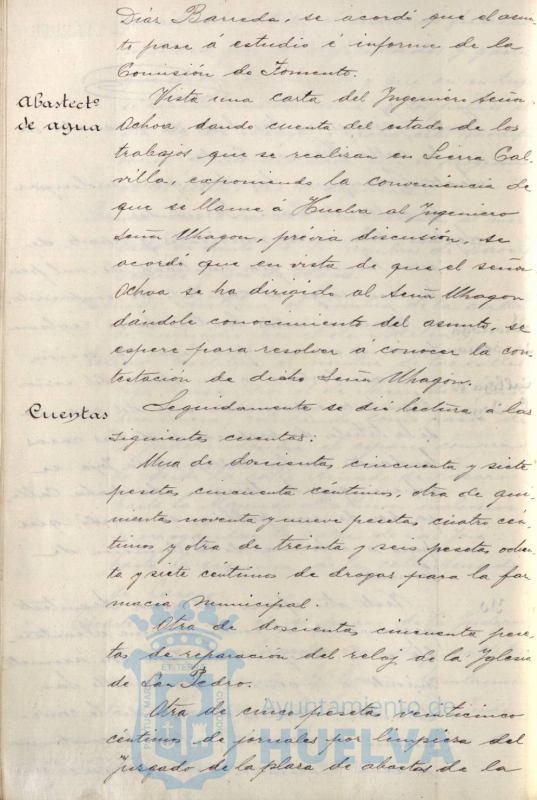 Díaz Barreda, se acordó que el asun-
to pase á estudio é informe de la
Comisión de Fomento.
Abastectº
de agua
Vista una carta del Ingeniero Señor
Ochoa dando cuenta del estado de los
trabajos que se realizan en Sierra Cal-
villa, exponiendo la conveniencia de
que se llame á Huelva al Ingeniero
Señor Uhagon, prévia discusión, se
acordó que en vista de que el señor
Ochoa se ha dirigido al Señor Uhagon
dándole conocimiento del asunto, se
espere para resolver á conocer la con-
testación de dicho Señor Uhagon.
Cuentas
Seguidamente se dió lectura á las
siguientes cuentas:
Una de doscientas cincuenta y siete
pesetas cincuenta céntimos, otra de qui-
nientas noventa y nueve pesetas cuatro cén-
timos y otra de treinta y seis pesetas ochen-
ta y siete céntimos de drogas para la far-
macia municipal.
Otra de doscientas cincuenta pese-
tas de reparación del reloj de la Iglesia
de San Pedro.
Otra de cinco pesetas veinticinco
céntimos de jornales por limpieza del
Juzgado de la plaza de abastos de la
Ayuntamiento de
HUELVA